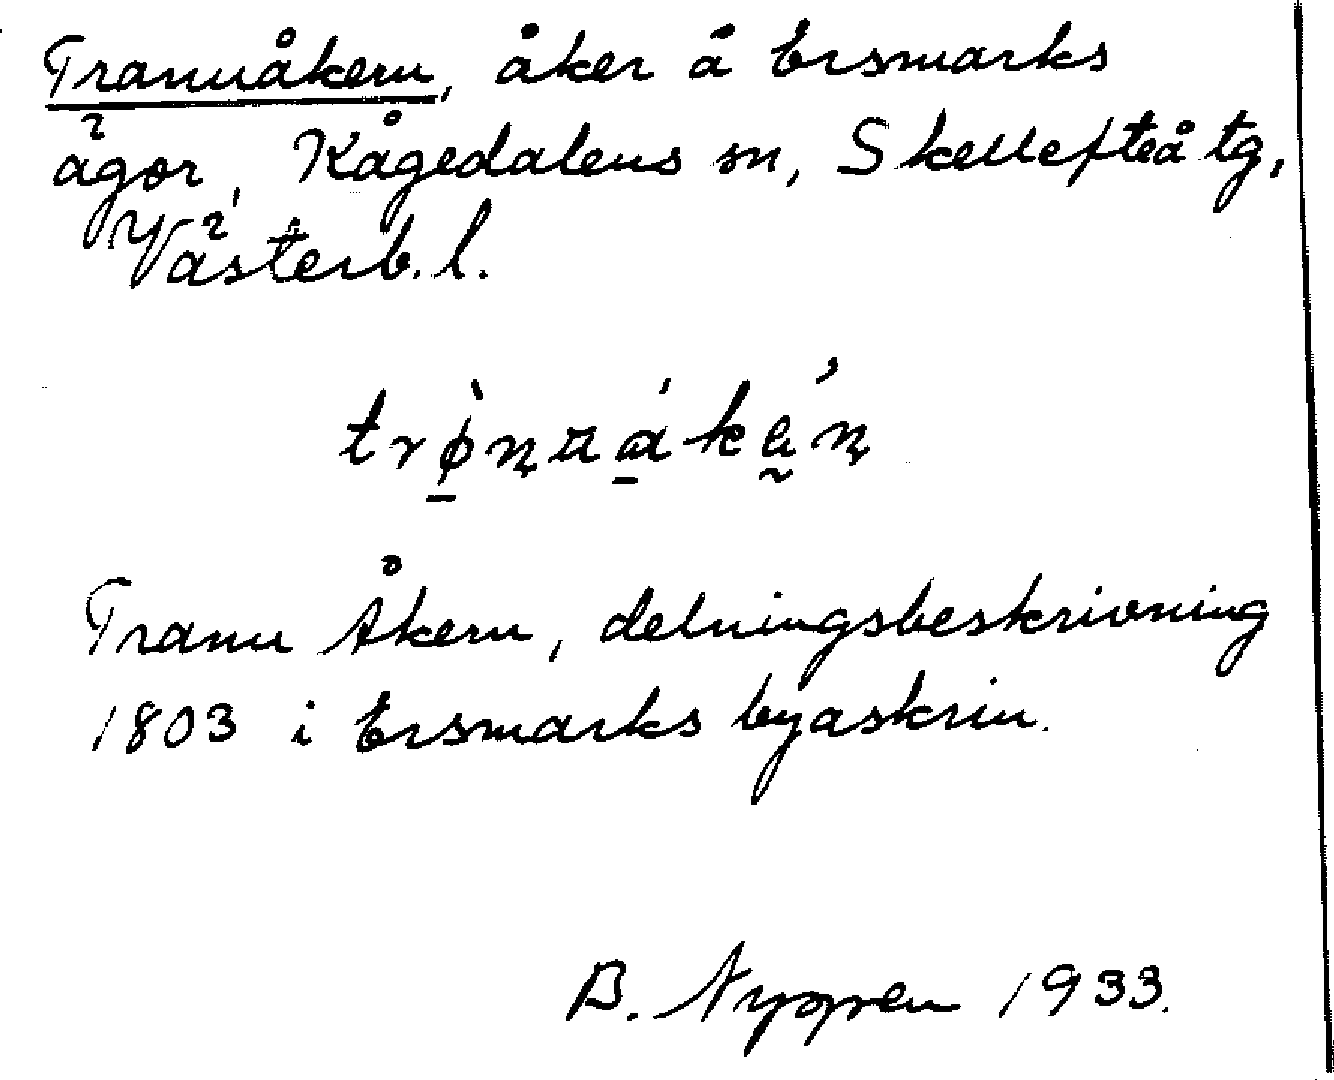 Trannåkern, åker å Ersmarks
ägor, Kågedalens sn, Skellefteå tg,
Västerb. l.
Trann Åkern, delningsbeskrivning
1803 i Ersmarks byaskrin.
B. 1933.